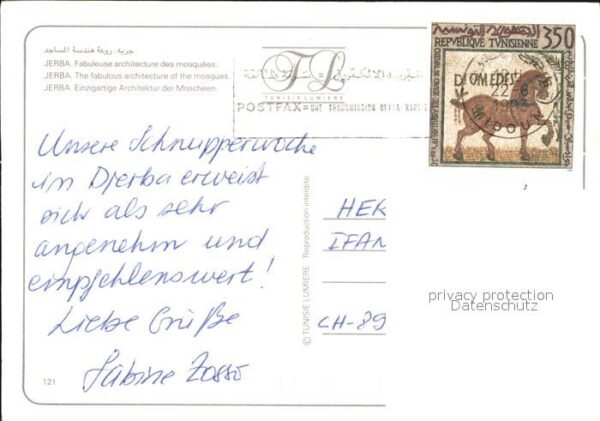 جربه. روعة هندسة المساجد
JERBA. Fabuleuse architecture des mosquées.
JERBA. The fabulous architecture of the mosques
JERBA. Einzigartige Architektur der Moscheen.
TL
TUNISIE LUMIERE
POSTFAX=UNE TRANSMISSION
REPUBLIQUE TUNISIENNE 350
22 6
MIDOUN
Unsere Schnupperwoche
in Djerba erweist
sich als sehr
angenehm und
empfehlenswert!
Liebe Grüße
Sabine Zosso
121
© TUNISIE LUMIERE Reproduction interdite
HER
IFAN
CH-89
privacy protection
Datenschutz